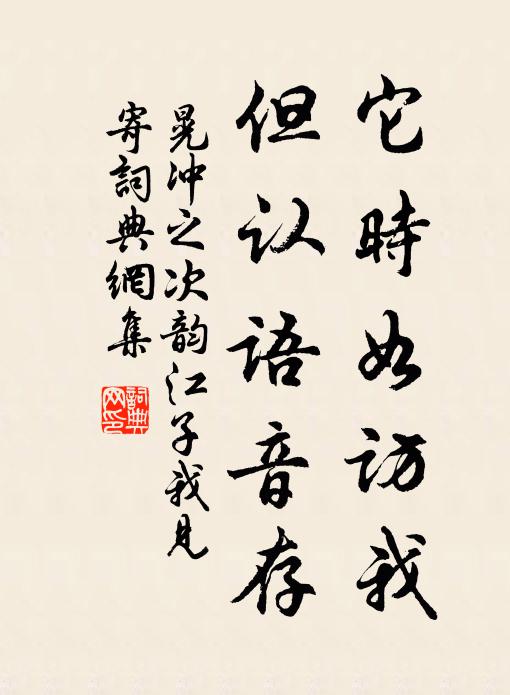 它時如訪我
但认語音存
晃冲之次韵江子我見
寄詞典網集
詞典
网印